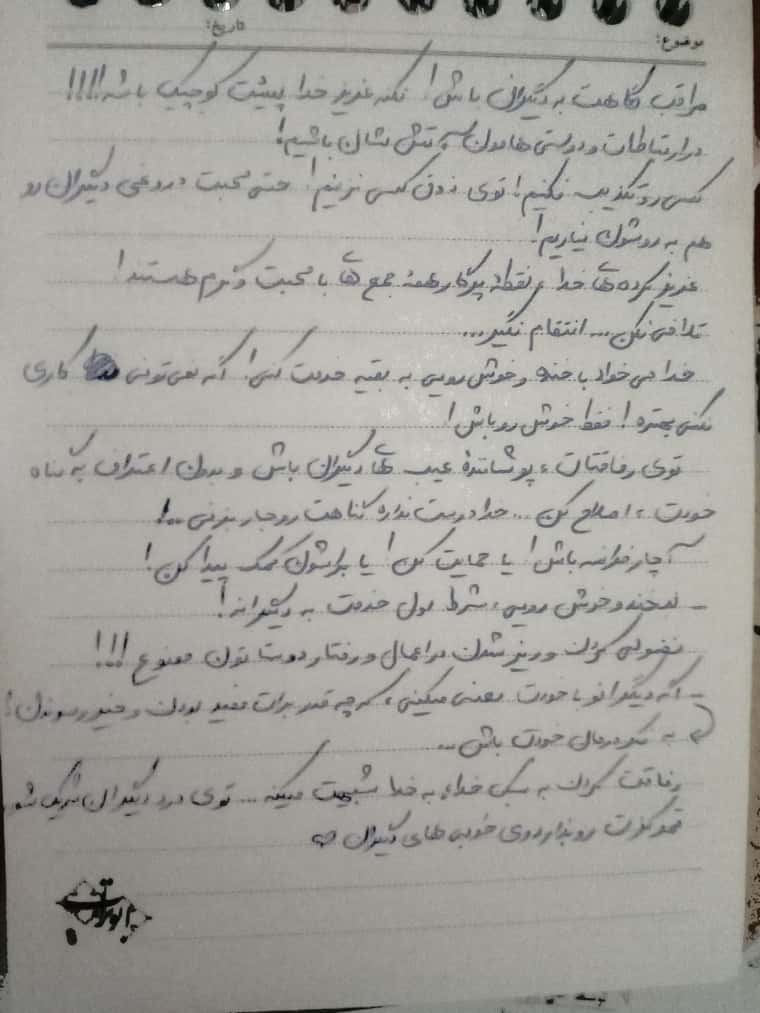 موضوع: تاریخ:
مراقب نگاهت به دیگران باش! نکنه عزیز خدا پیشت کوچیک باشه!!!!
در ارتباطات و دوستی هامون سپر تنش نشان باشیم!
کسی رو تکذیب نکنیم! توی ذوق کسی نزنیم! حتی محبت دروغی دیگران رو
هم به روشون نیاریم!
عزیز کرده های خدا، نقطهٔ پرگار همهٔ جمع های با محبت و گرم هستند!
تلافی نکن... انتقام نگیر...
خدا می خواد با خنده و خوش رویی به بقیه خدمت کنی! اگه نمی تونی کاری
نکنی بهتره! فقط خوش رو باش!
توی رفاقتات، پوشانندهٔ عیب های دیگران باش و بدون اعتراف به گناه
خودت، اصلاح کن... خدا دوست نداره گناهت رو جار بزنی...!
آچار فرانسه باش! یا حمایت کن! یا براشون کمک پیدا کن!
- لبخند و خوش رویی، شرط اول خدمت به دیگرانه!
فضولی کردن و ریز شدن در اعمال و رفتار دوستاتون ممنوع!!!
- اگه دیگرانو با خودت معنی میکنی، که چه قدر برات مفید بودن و خیر رسوندن!
به فکر درمان خودت باش...
رفاقت کردن به سبک خدا، به خدا شبیهت میکنه... توی درد دیگران شریک شو
تمرکزت رو بذار روی خوبی های دیگران
ابوتراب